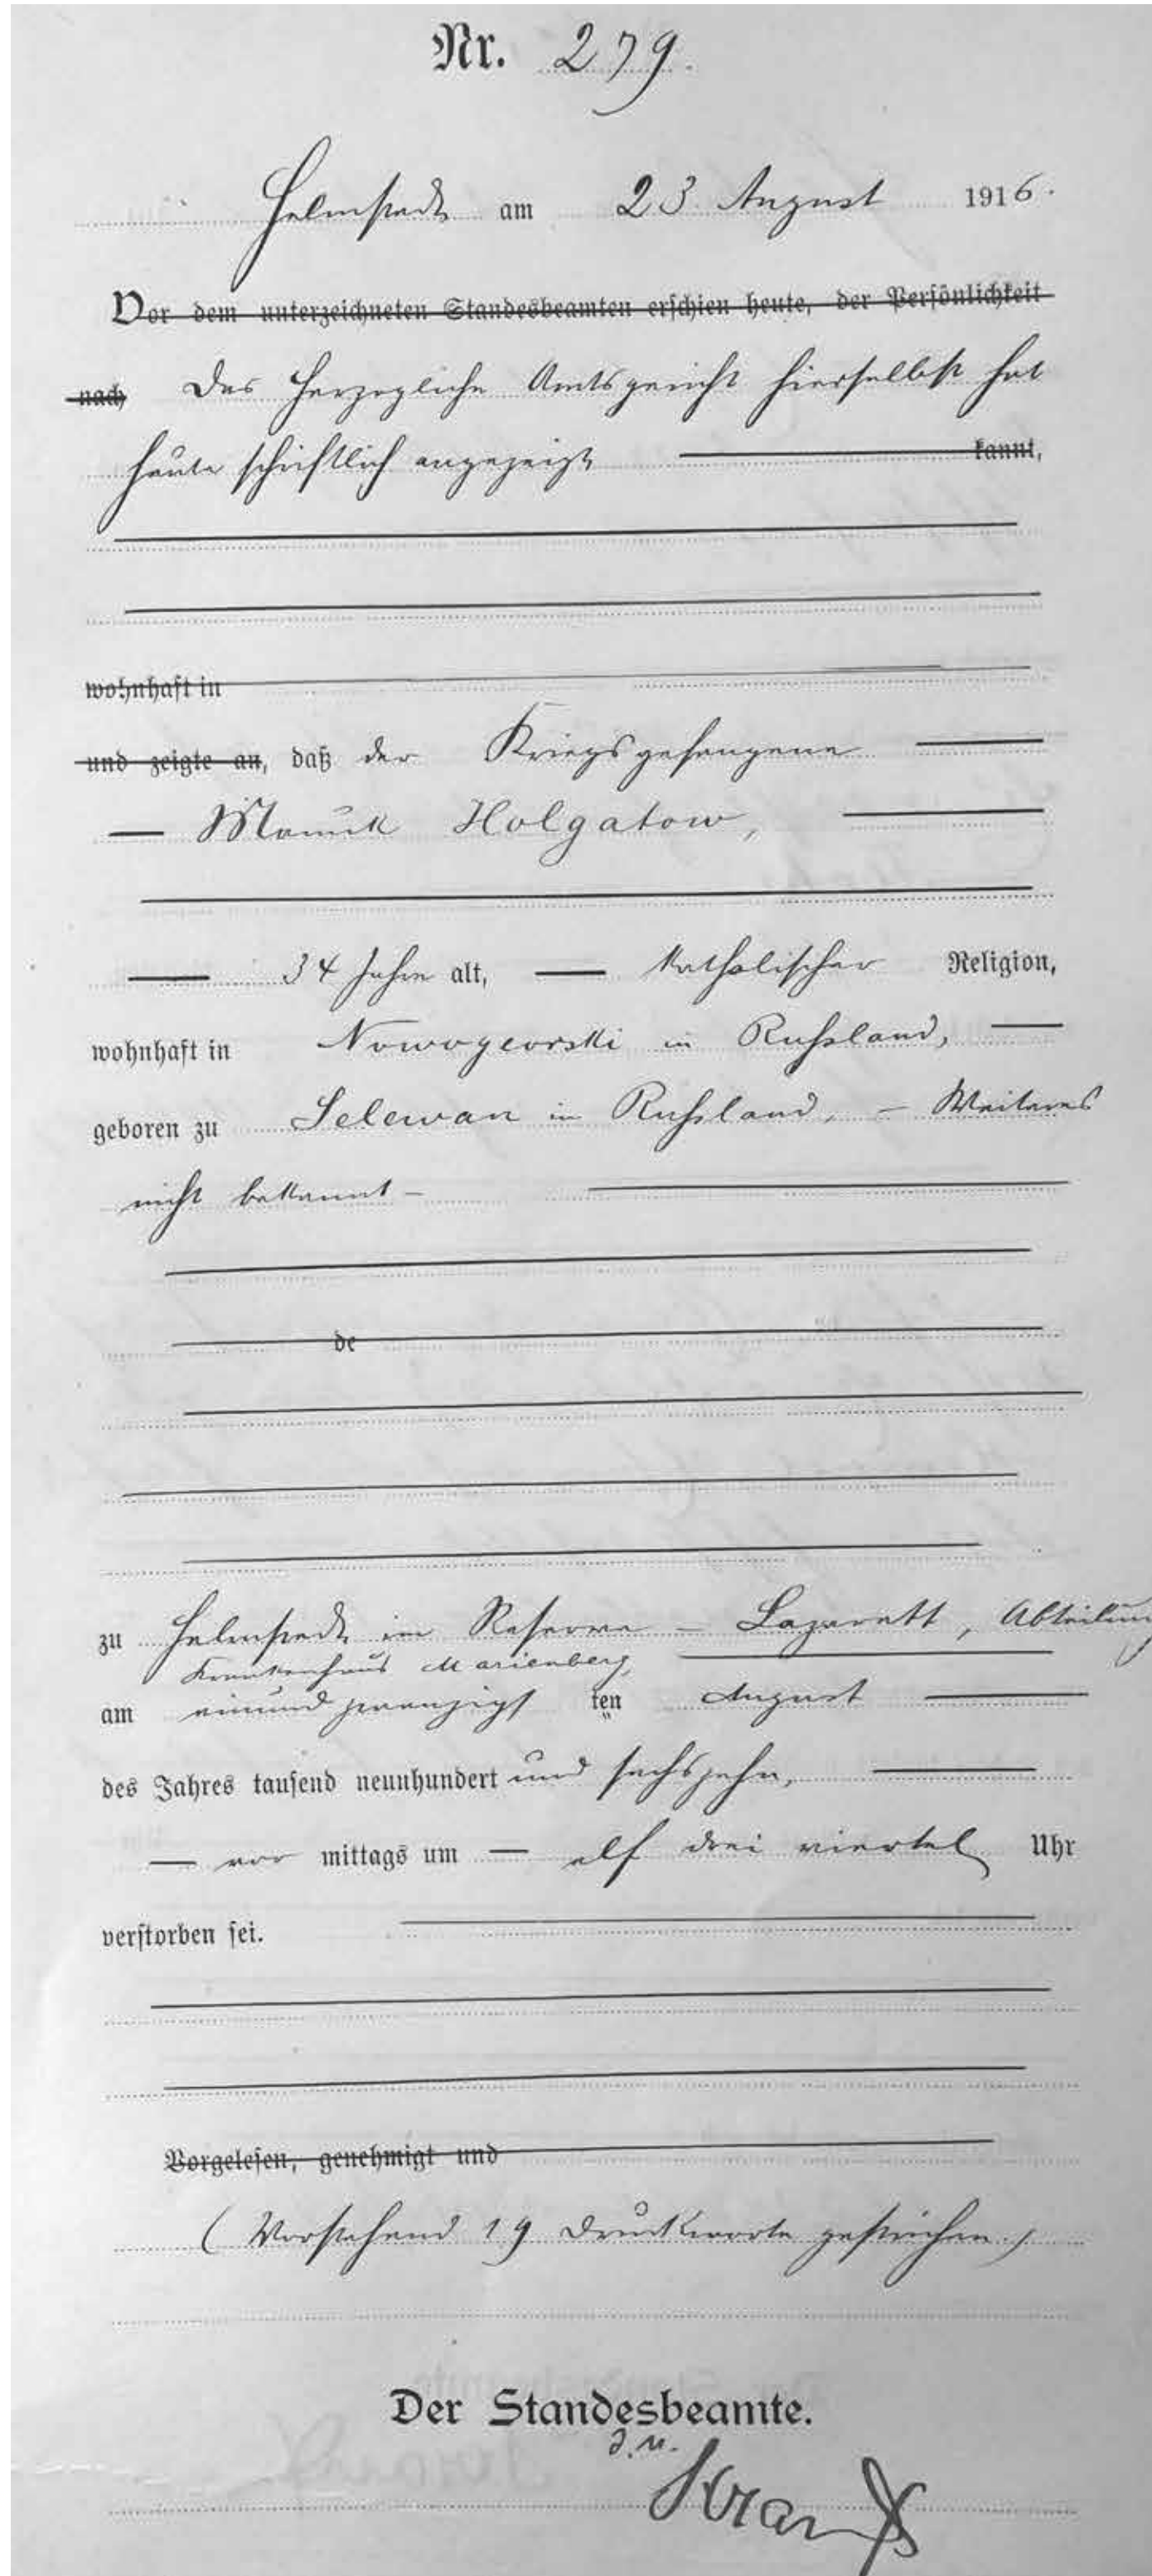 Nr. 279.
Helmstedt am 23 August 1916.
Vor dem unterzeichneten Standesbeamten erschien heute, der Persönlichkeit
nach Das Herzogliche Amtsgericht hierselbst hat
heute schriftlich angezeigt kannt,
wohnhaft in
und zeigte an, daß der Kriegsgefangene
Holgatow,
34 Jahre alt, katholischer Religion,
wohnhaft in Nowogeorski in Russland,
geboren zu Selewan in Russland, – Weiteres
nicht bekannt –
de
zu Helmstedt im Reserve – Lazarett, Abteilung
Krankenhaus Marienberg,
am einundzwanzigsten August
des Jahres tausend neunhundert und sechszehn,
vor mittags um elf drei viertel Uhr
verstorben sei.
Vorgelesen, genehmigt und
(Vorstehend 19 Druckworte gestrichen.)
Der Standesbeamte.